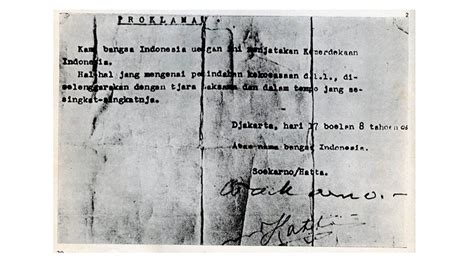 2
P R O K L A M A S I.
Kami bangsa Indonesia dengan ini menjatakan Kemerdekaan
Indonesia.
Hal-hal jang mengenai pemindahan kekoeasaan d.l.l., di-
selenggarakan dengan tjara saksama dan dalam tempo jang se-
singkat-singkatnja.
Djakarta, hari 17 boelan 8 tahoen 05
Atas nama bangsa Indonesia.
Soekarno/Hatta.
Soekarno.-
Hatta